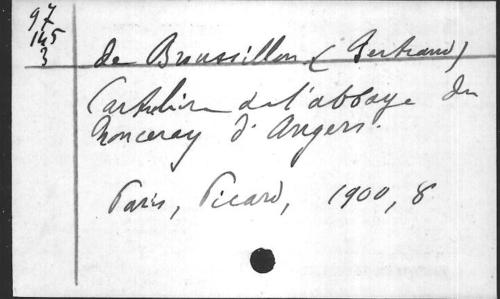 97
145
3
de Broussillon (Bertrand)
Cartulaire de l'abbaye du
Ronceray d'Angers.
Paris, Picard, 1900, 8